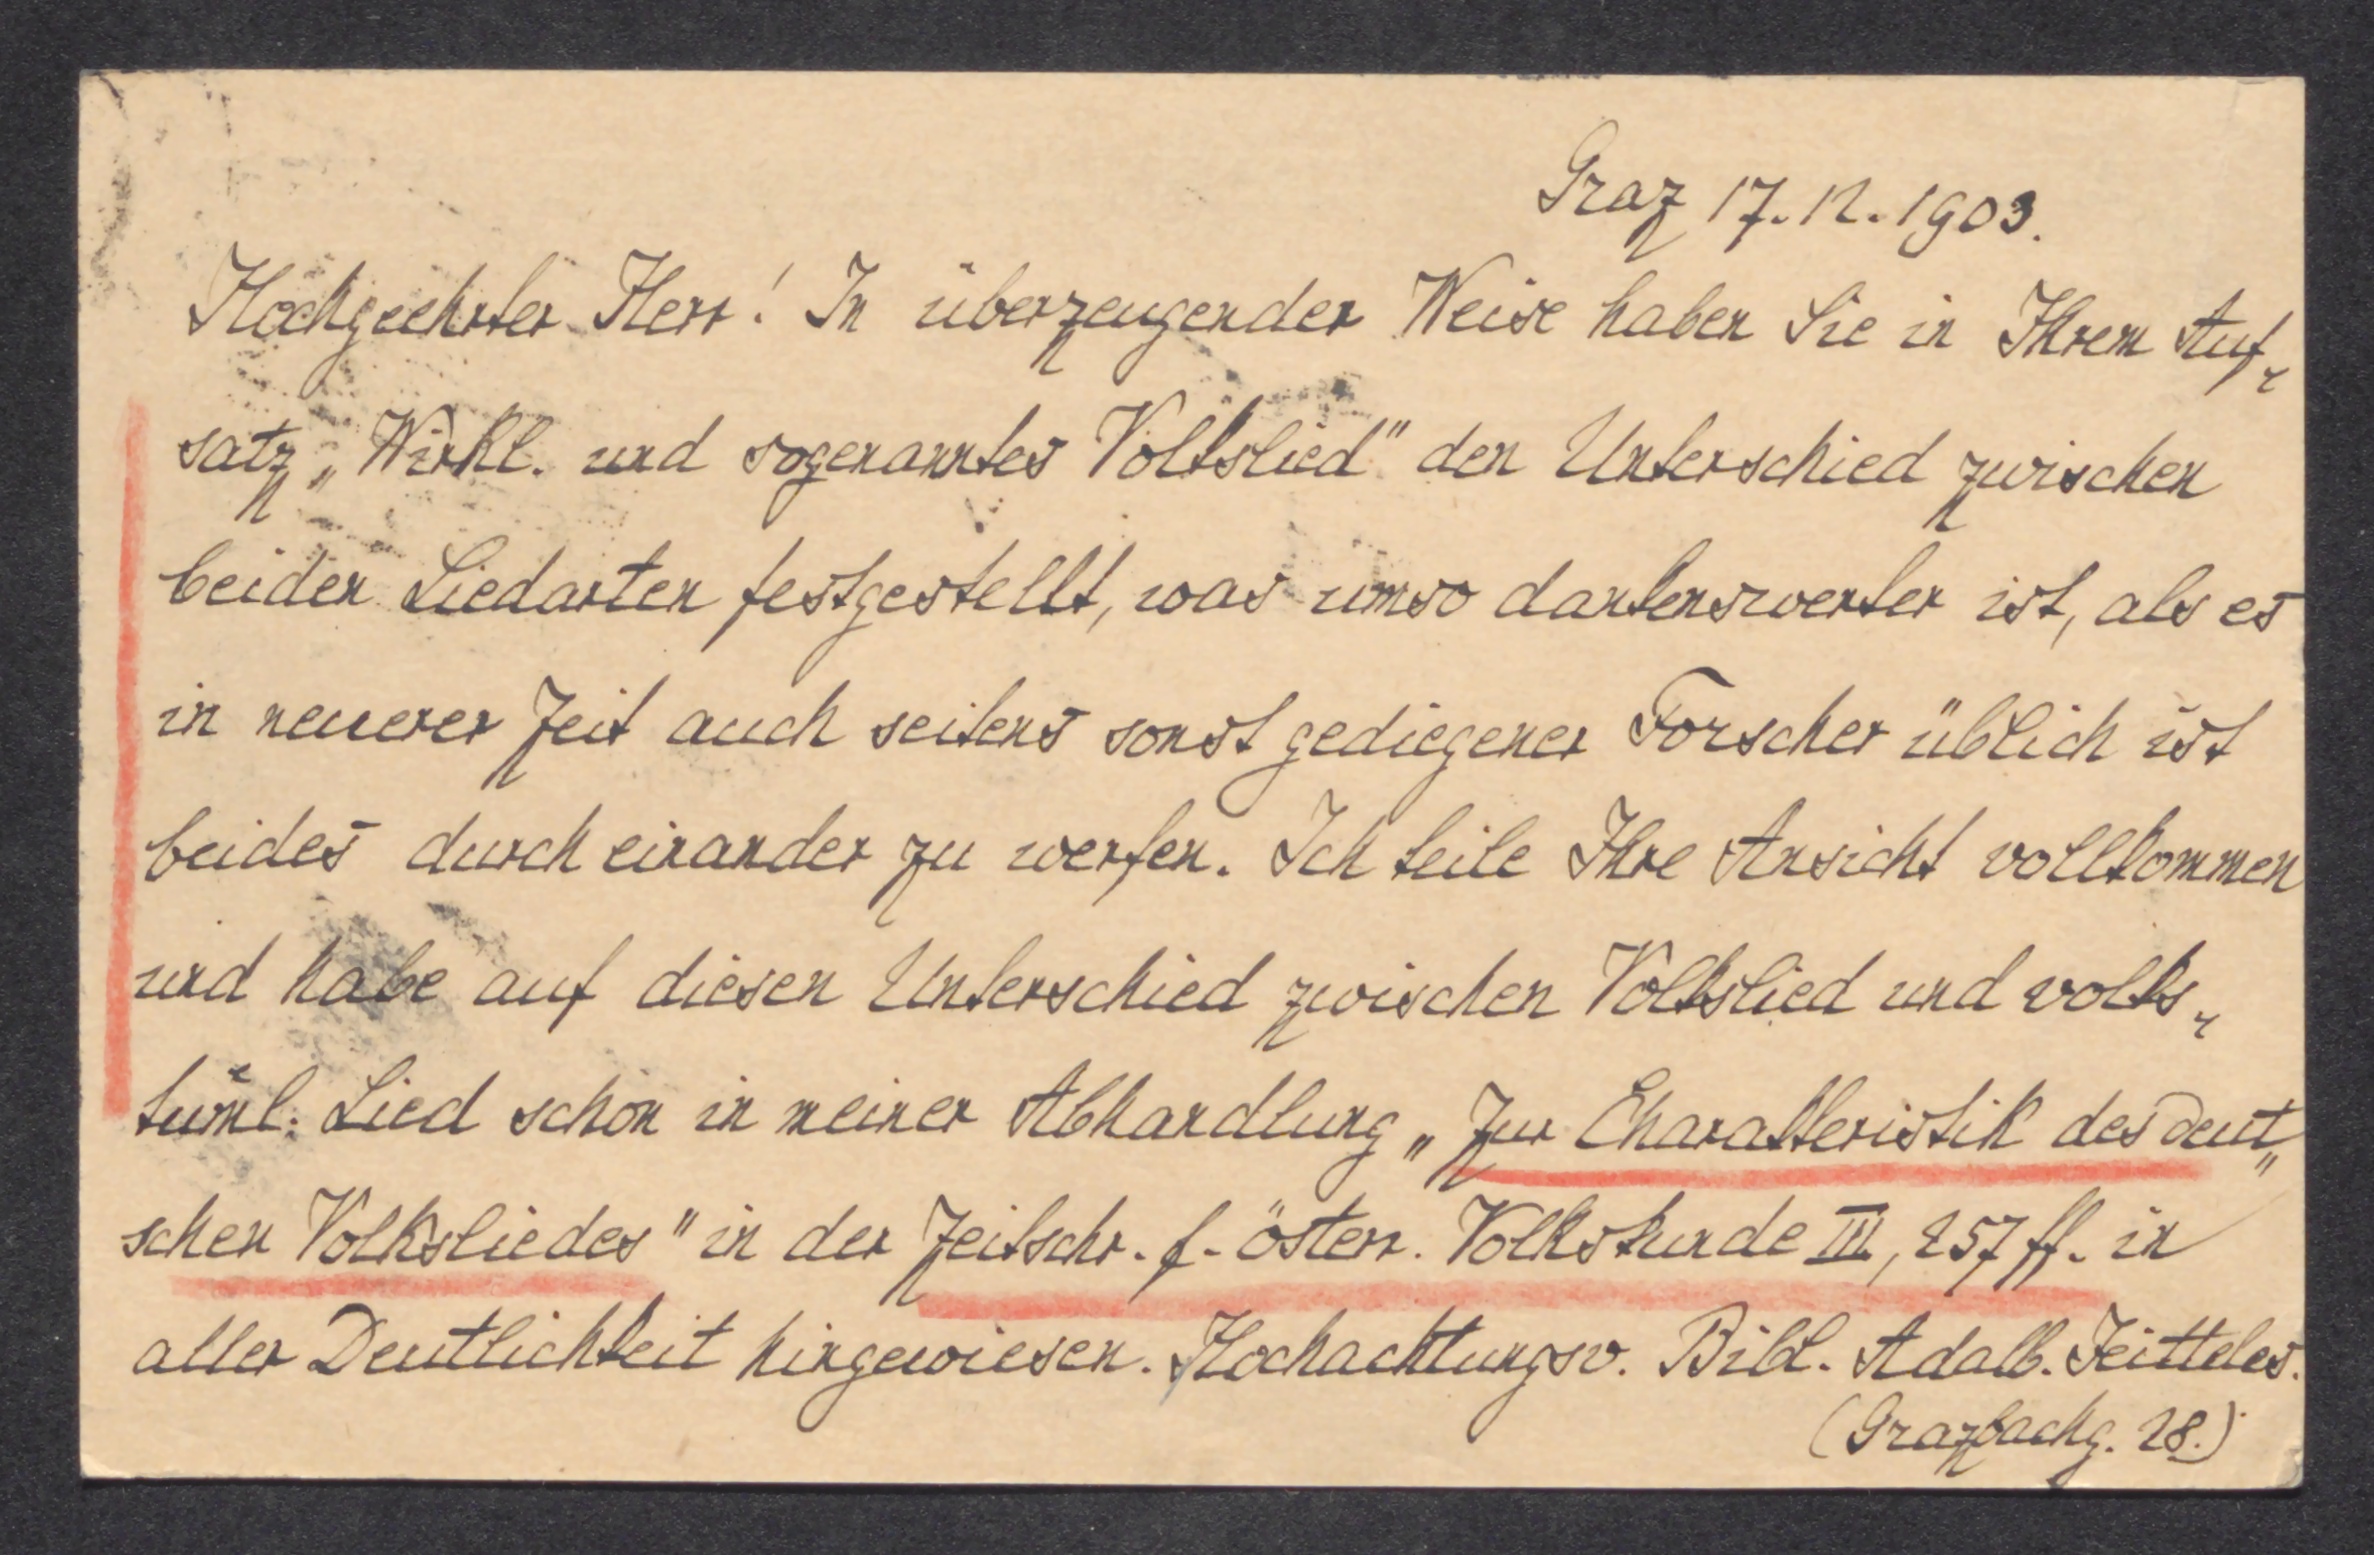 Graz 17. 12. 1903.
Hochgeehrter Herr! In überzeugender Weise haben Sie in Ihrem Auf-
satz „Wirkl. und sogenanntes Volkslied" den Unterschied zwischen
beiden Liedarten festgestellt, was umso dankenswerter ist, als es
in neuerer Zeit auch seitens sonst gediegener Forscher üblich ist
beides durch einander zu werfen. Ich teile Ihre Ansicht vollkommen
und habe auf diesen Unterschied zwischen Volkslied und volks-
tüml. Lied schon in meiner Abhandlung „Zur Charakteristik des deut-
schen Volksliedes" in der Zeitschr. f. österr. Volkskunde III, 257 ff. in
aller Deutlichkeit hingewiesen. Hochachtungsv. Bibl. Adalb. Jeitteles.
(Grazbachg. 28.)